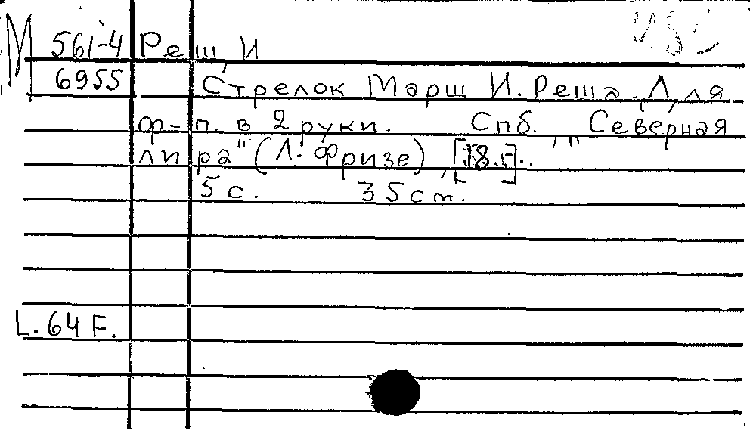 М 561-4 Реш, И
6955 Стрелок Марш И. Реша. Для
ф-п. в 2 руки. Спб. "Северная
лира" (Л. Фризе), [18..г].
5 с. 35 cm.
L. 64 F.